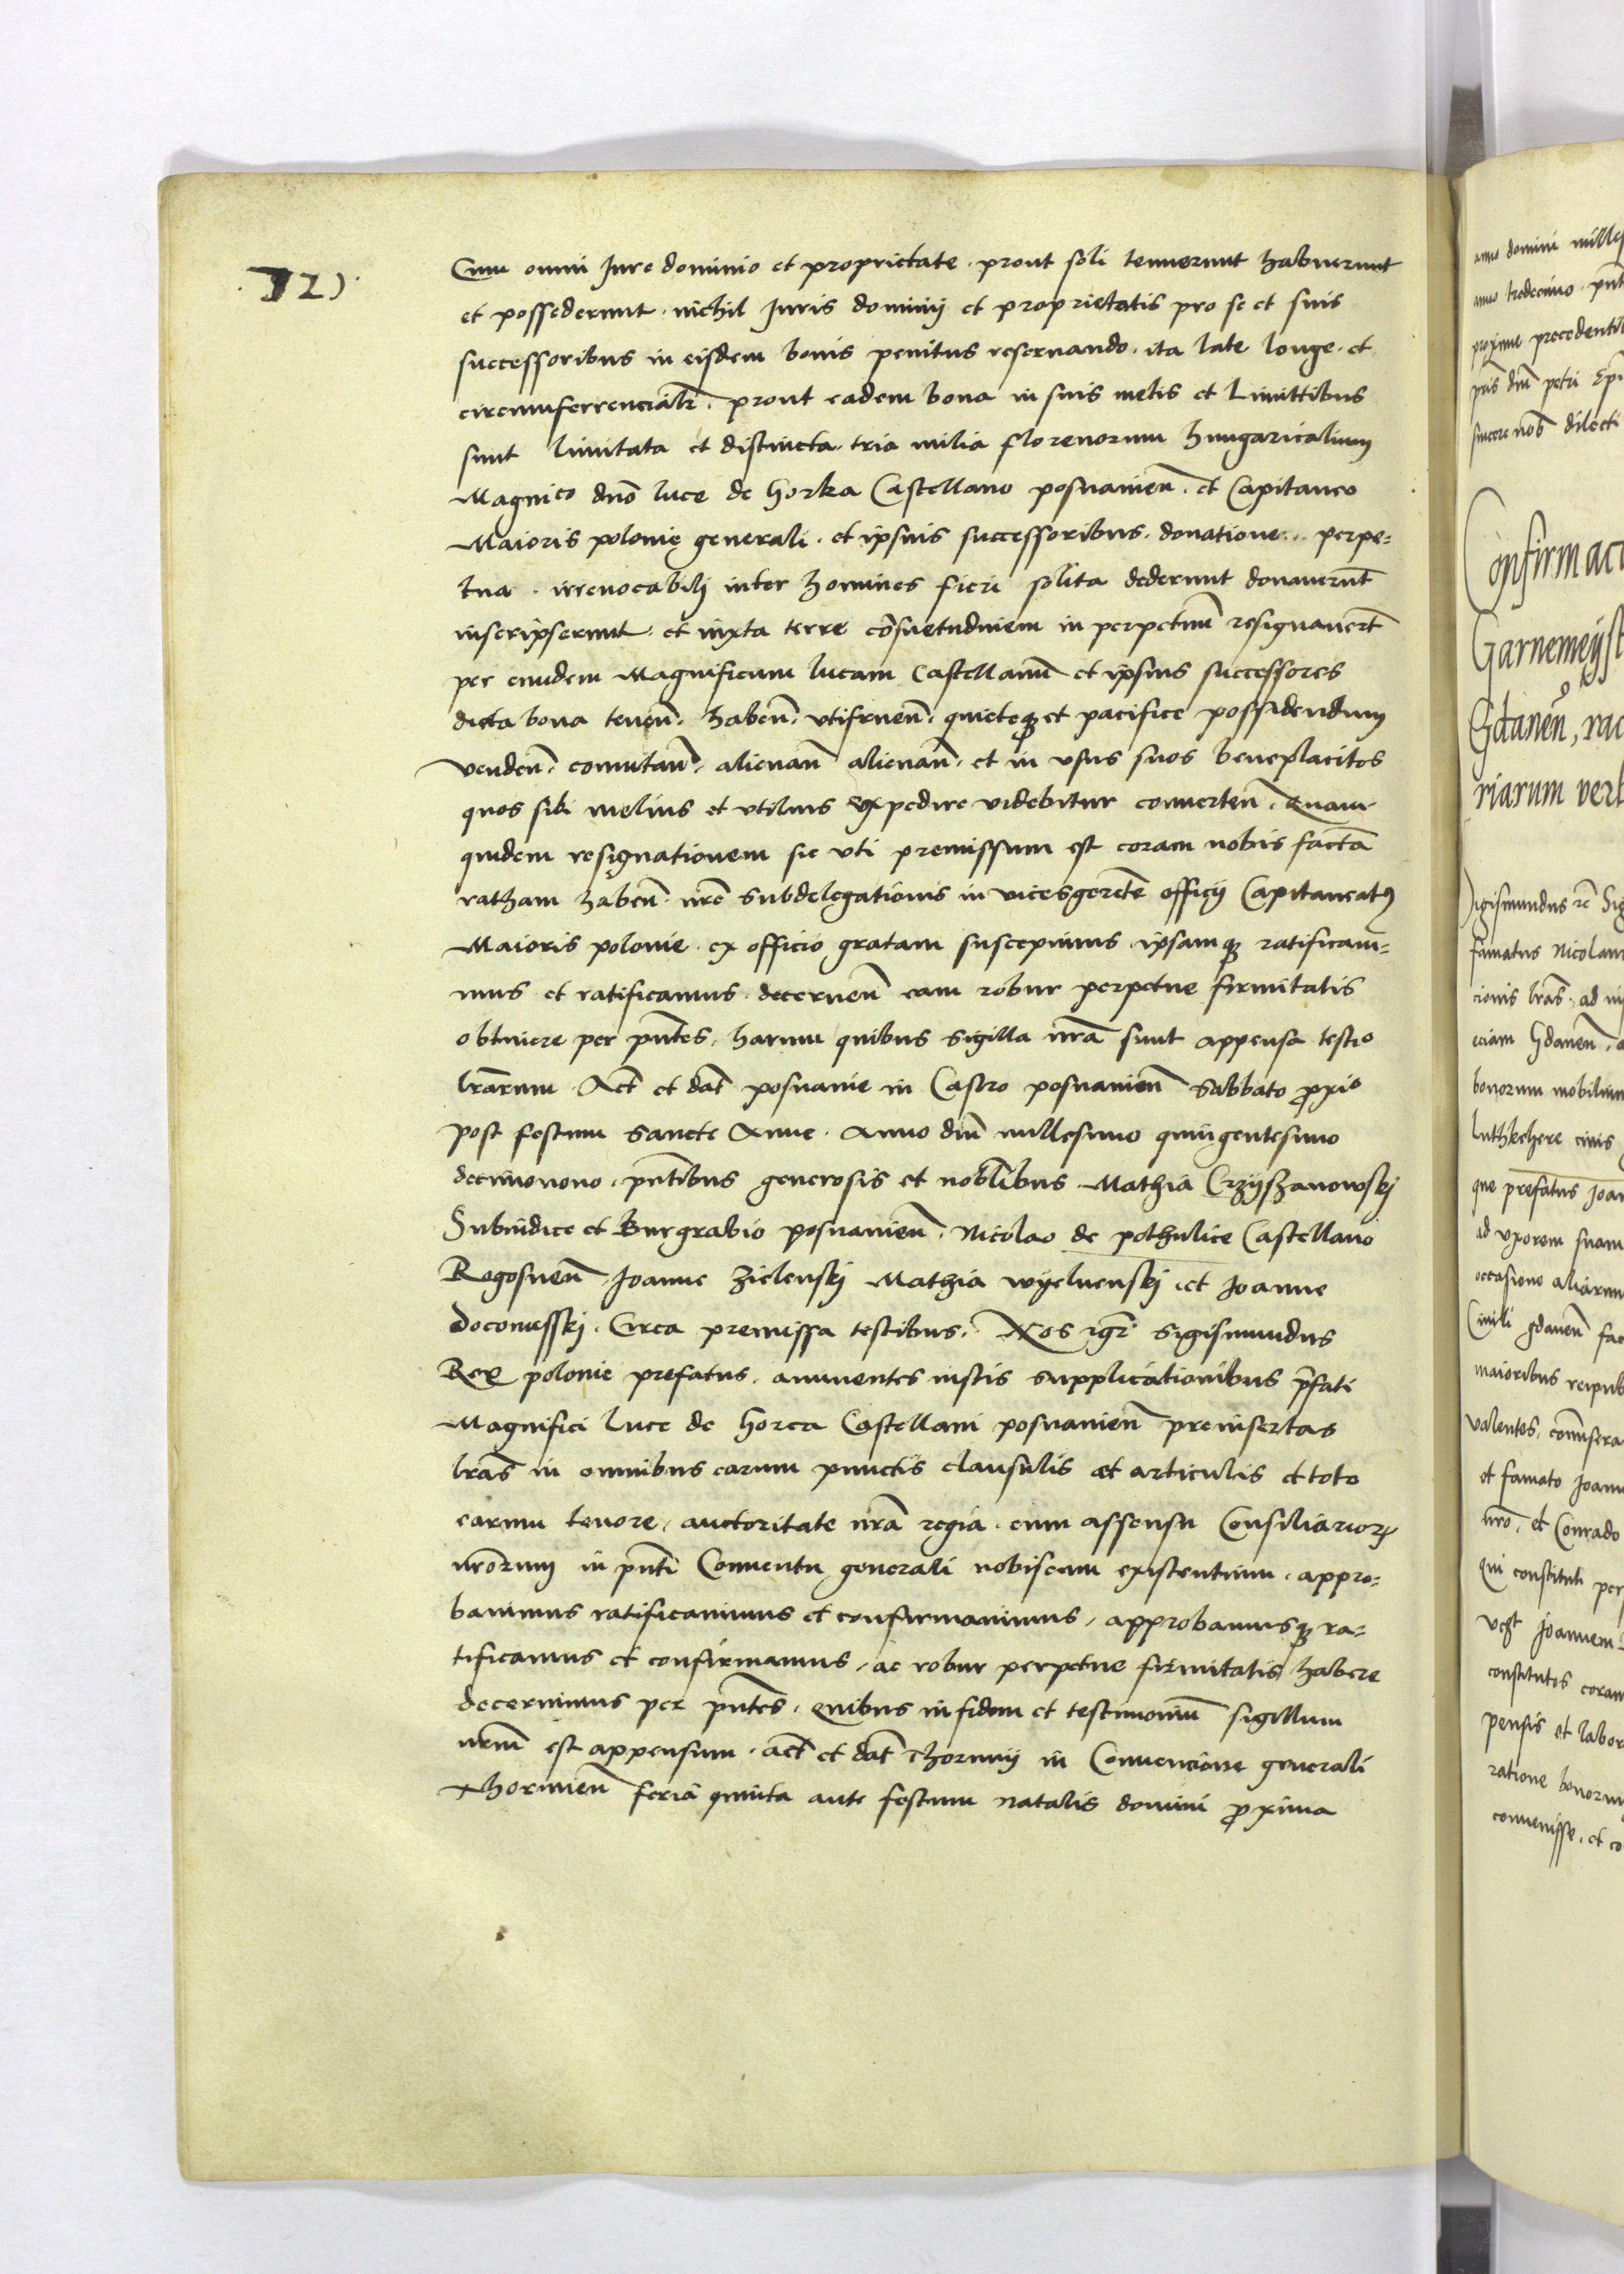 Cum omni Jure dominio et proprietate . prout soli tenuerunt habuerunt
et possederunt . nichil Juris dominij et proprietatis pro se et suis
successoribus in eisdem bonis penitus reseruando . ita late longe . et
circumferrencialr̃ . prout eadem bona in suis metis et Limittibus
sunt limitata et distincta . tria milia florenorum hungaricalium
Magnico dno luce de horka Castellano posnanieñ . et Capitaneo
Maioris polonię generali . et ipsius successoribus . donatione . perpe=
tua . irreuocabilj inter homines fieri solita dederunt donauerunt̃
inscripserunt . et iuxta terre cōsuetudinem in perpetuū resignauert̃
per eundem Magnificum lucam Castellanū et ipsius successores
dicta bona teneñ . habeñ . vtifrueñ . quieteqꝫ et pacifice possidendum
vendeñ . comutañ . alienañ alienañ . et in vsus suos beneplacitos
quos sibi melius et vtilius expedire videbitur conuerteñ . Quam
quidem resignationem sic vti premissum est coram nobis factā
ratham habeñ . nr̃e subdelegationis in vicesgerēte officij Capitaneatꝰ
Maioris polonie . ex officio gratam suscepimus . ipsamqꝫ ratificaui=
mus et ratificamus . decerneñ eam robur perpetue firmitatis
obtinere per pñtes . harum quibus sigilla nr̃a sunt appensa testio
lr̃arum . Act̃ et dat̃ posnanie in Castro posnanieñ Sabbato ꝓxio
post festum Sancte Anne . Anno dni millesimo quingentesimo
decimonono . pñtibus generosis et nobl̃ibus Mathia Crzijszanowskj
Subiudice et Burgrabio posnanieñ . Nicolao de pothulice Castellano
Rogosneñ . Joanne Zielenskj Mathia wyeluenskj . et Joanne
Circa premissa testibus . Nos igr̃ Sigismundus
Rex polonie prefatus . annuentes iustis supplicationibus p̃fati
Magnifici luce de horca Castellani posnanieñ preinsertas
lr̃as in omnibus earum punctis clausulis et articulis et toto
earum tenore . auctoritate nr̃a regia . cum assensu Consiliarioꝝ
nr̃orum in pñti Conuentu generali nobiscum existentium . appro=
bauimus ratificauimus et confirmauimus . approbamusqꝫ ra=
tificamus et confirmamus . ac robur perpetue firmitatis habere
decernimus per pñtes . Quibus in fidem et testimoniū sigillum
nr̃m est appensum . act̃ et dat̃ Thorunij in Conuencione generali
Thorunieñ feria quinta ante festum natalis domini ꝓxima
anno domini
anno tredecimo .
proxime precedentib
petri
sincere nob̃ dilecti
Confirmac
Garnemeijst
Gdaneñ, rac
riarum verb
Sigismundus
famatus Nicolaus
cionis lr̃as . ad
eciam Gdaneñ .
bonorum mobilium
ciuis
que prefatus Joan
ad vxorem suam
occasione aliarum
Ciuili gdaneñ
maioribus reipub
valentes,
et famato Joann
nr̃o . et Conrado
qui constituti per
Joannem
constitutos coram
pensis et labor
ratione bonorum
conuenisse . et co